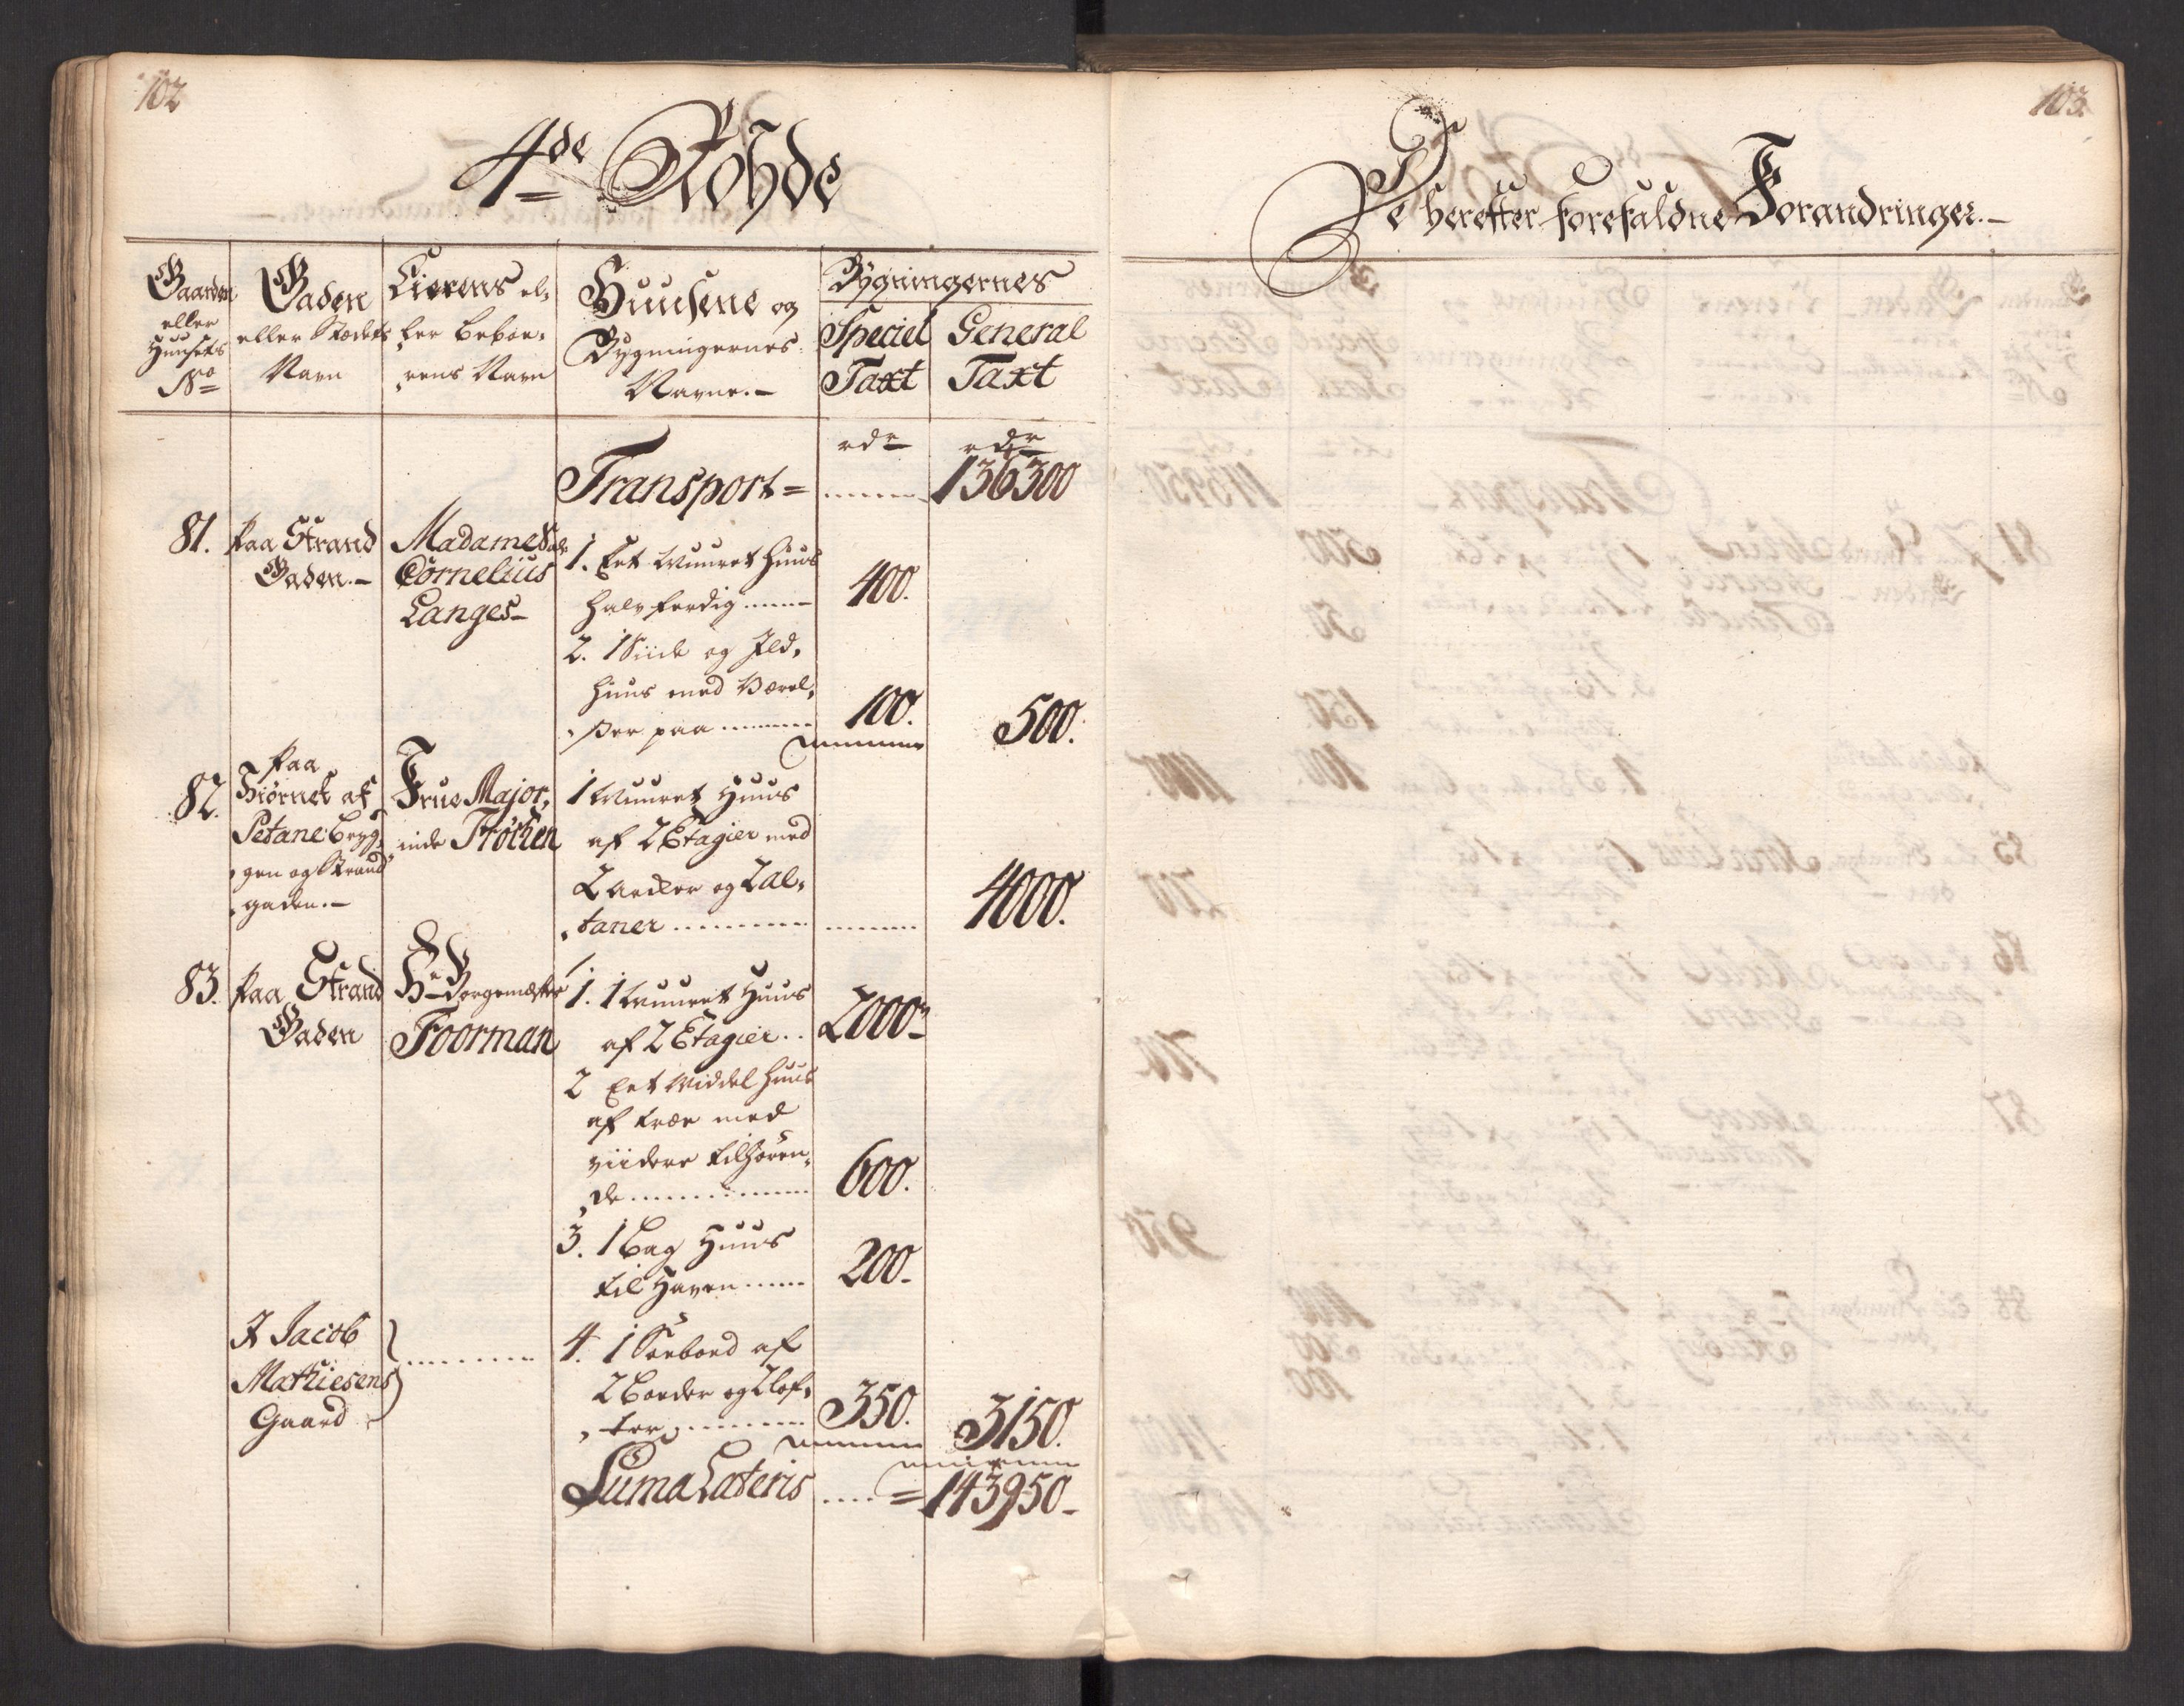 102
4de Rohde
Gaarden
eller
Huusets
No
Gaden
eller Stædets
Navn
Eierens el,
ler Beboe,
,rens Navn
Huusene og
Bygningernes
Navne.-
Bygningernes
Speciel
Taxt
General
Taxt
rdr
rdr
Transport=
136300
81.
Paa Strand
Gaden.-
Madame Sal:
Cornelius
Langes-
1. Eet Muuret Huus
halv færdig
400.
2. 1 Siide og Ild,
huus med Værel,
,ser paa
100.
500.
82.
Paa
Hiørnet af
Petane Bryg,
,gen og Strand
,gaden.-
Frue Major,
inde Frölichen
1 Muuret Huus
af 2 Etagier med
2 Arcker og 2 Al,
,taner
4000.
83.
Paa Strand
Gaden
Hr Borgemæster
Foorman
1. 1 Muuret Huus
af 2 Etagier..
2000-
2 Eet Middel Huus
af træe med
viidere tilhøren,
,de
600.
3. 1 Bag Huus
til Haven
200.
I Jacob
Mathiesens
Gaard
4. 1 Søebod af
2 Boeder og 2 lof,
,ter
350.
3150.
Suma Lateris
=143950-
103.
De herefter forefaldne Forandringer.-